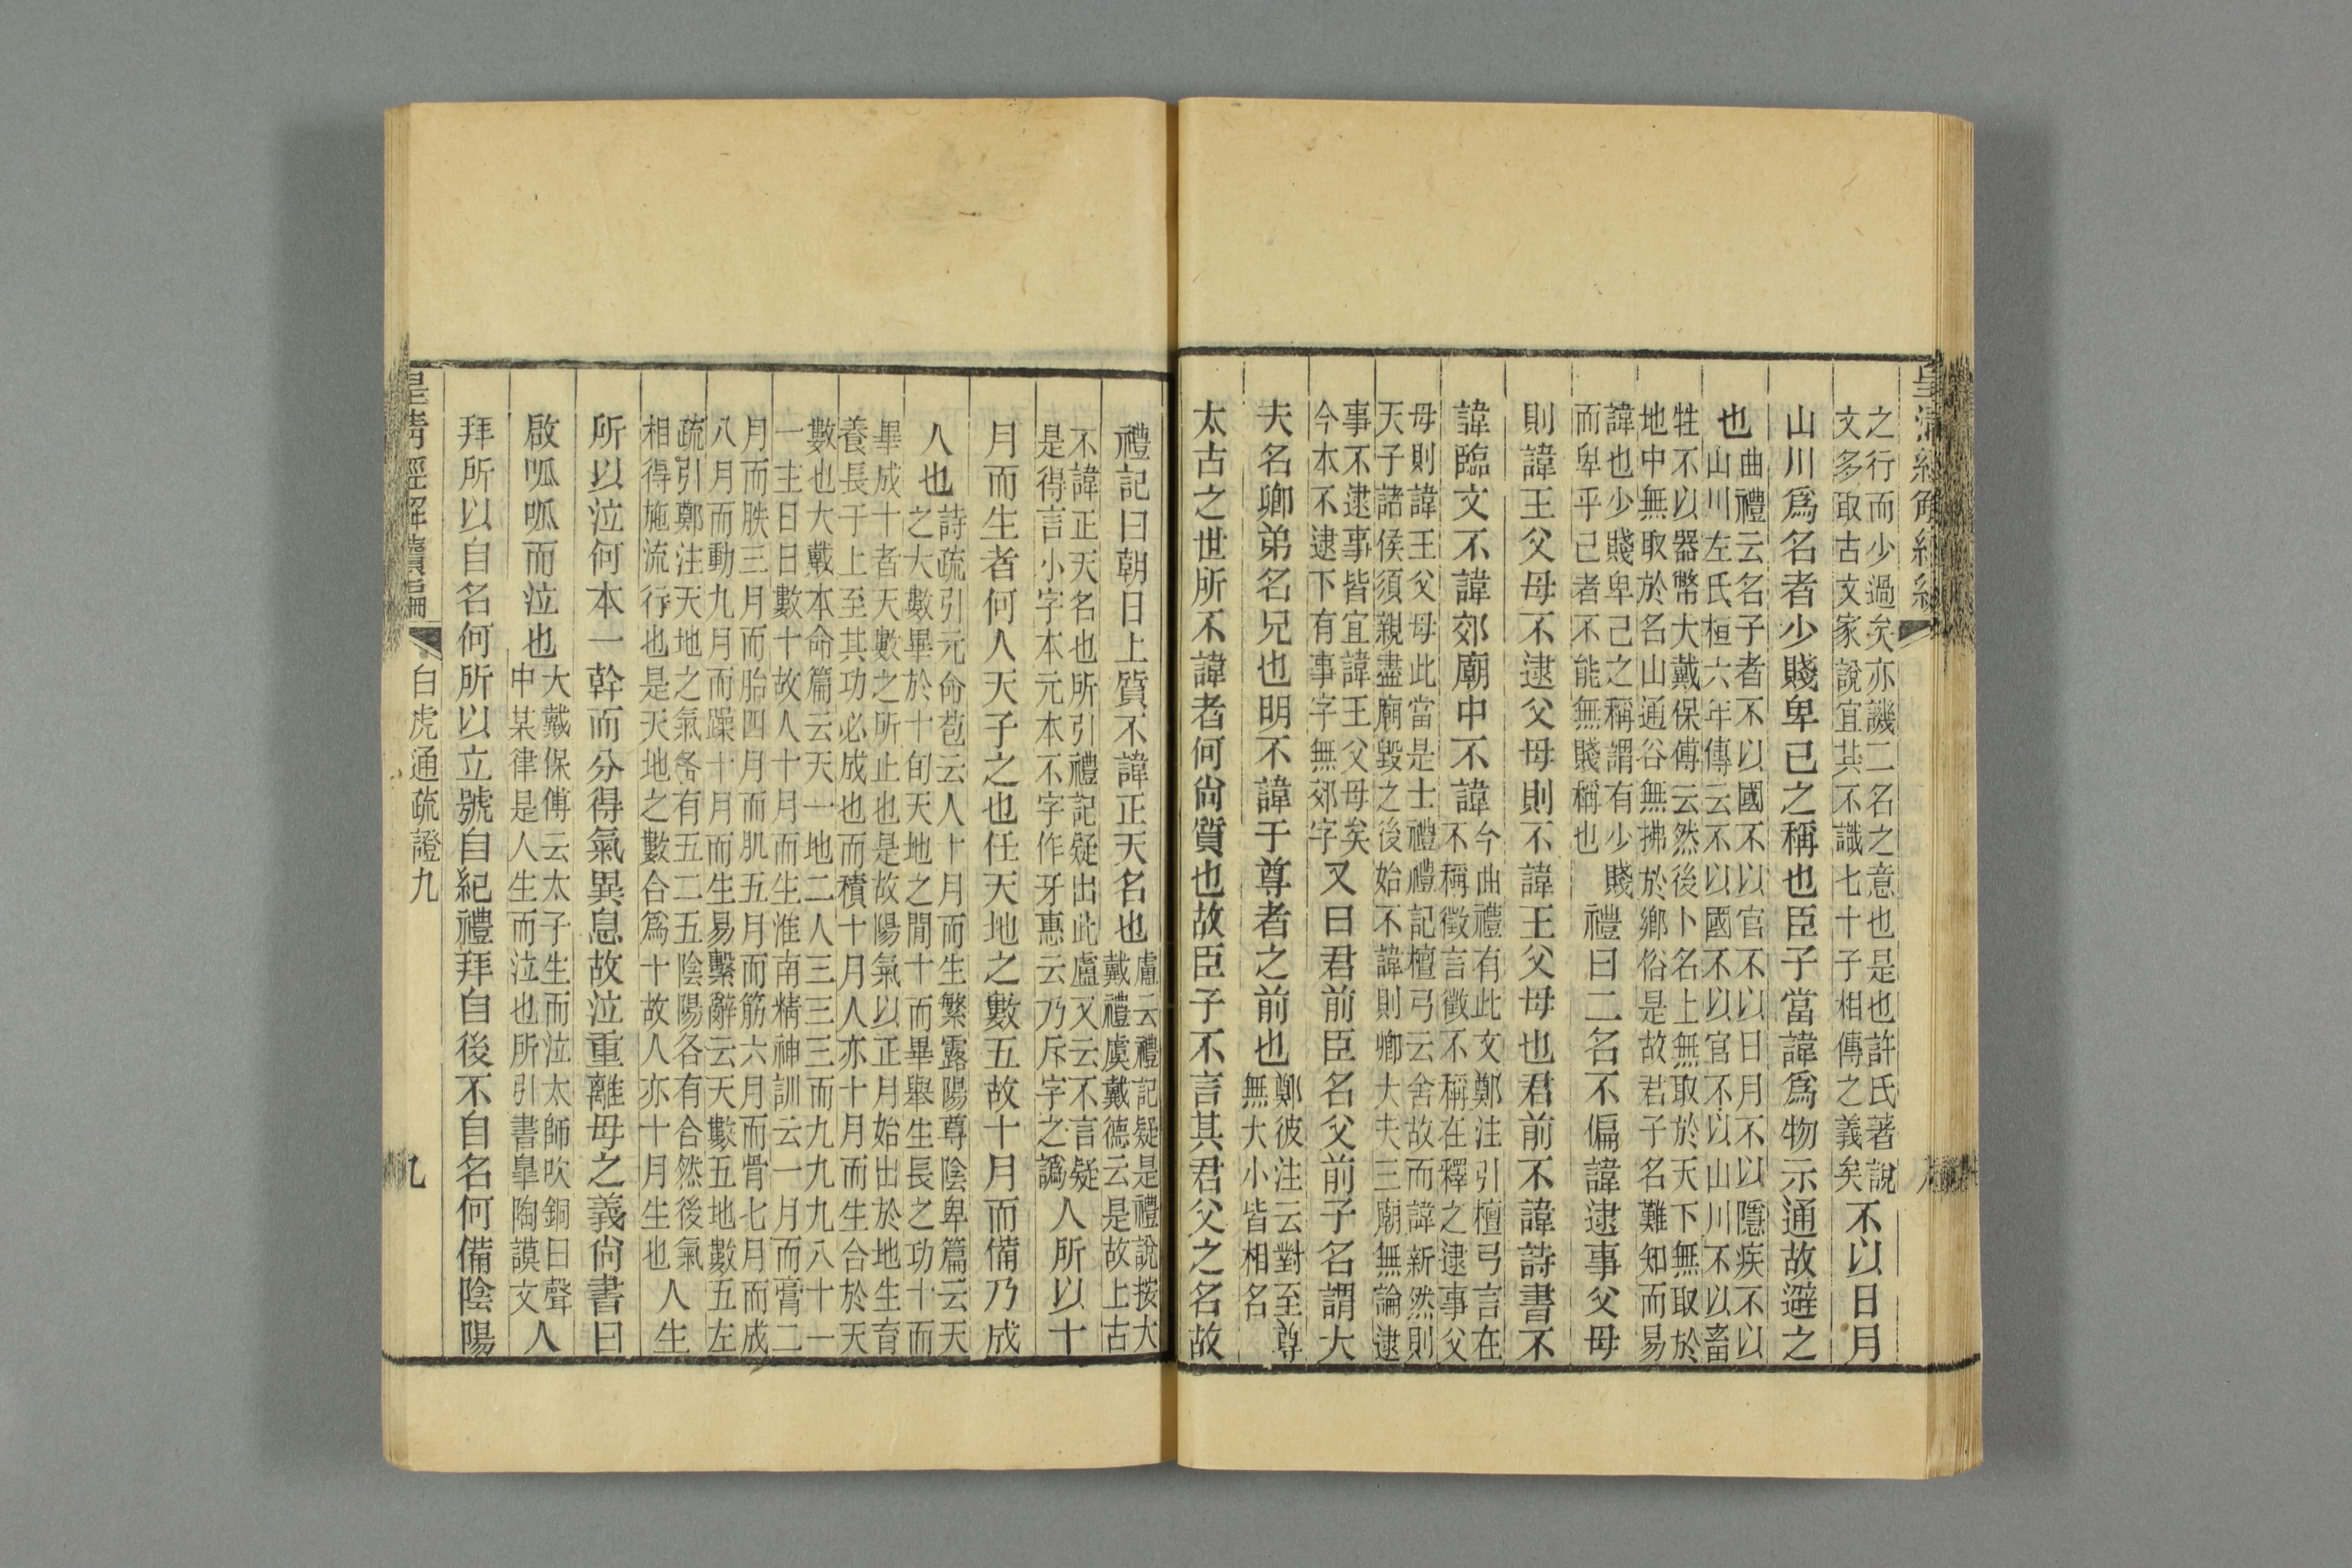 之行而少過矣亦譏二名之意也是也許氏著說
文多取古文家說宜其不識七十子相傳之義矣
不以日月
山川爲名者少賤卑已之稱也臣子當諱爲物示通故避之
也
曲禮云名子者不以國不以官不以日月不以隱疾不以
山川左氏桓六年傳云不以國不以官不以山川不以畜
牲不以器幣大戴保傅云然後卜名上無取於天下無取於
地中無取於名山通谷無拂於鄉俗是故君子名難知而易
諱也少賤卑己之稱謂有少賤
而卑乎己者不能無賤稱也
禮曰二名不偏諱逮事父母
則諱王父母不逮父母則不諱王父母也君前不諱詩書不
諱臨文不諱郊廟中不諱
今曲禮有此文鄭注引檀弓言在
不稱徵言徵不稱在釋之逮事父
母則諱王父母此當是士禮禮記檀弓云舍故而諱新然則
天子諸侯須親盡廟毀之後始不諱則卿大夫三廟無論逮
事不逮事皆宜諱王父母矣
今本不逮下有事字無郊字
又曰君前臣名父前子名謂大
夫名卿弟名兄也明不諱于尊者之前也
鄭彼注云對至尊
無大小皆相名
太古之世所不諱者何尙質也故臣子不言其君父之名故
禮記曰朝日上質不諱正天名也
盧云禮記疑是禮說按大
戴禮虞戴德云是故上古
不諱正天名也所引禮記疑出此盧又云不言疑
是得言小字本元本不字作牙惠云乃斥字之譌
人所以十
月而生者何人天子之也任天地之數五故十月而備乃成
人也
詩疏引元命苞云人十月而生繁露陽尊陰卑篇云天
之大數畢於十旬天地之間十而畢舉生長之功十而
畢成十者天數之所止也是故陽氣以正月始出於地生育
養長于上至其功必成也而積十月人亦十月而生合於天
數也大戴本命篇云天一地二人三三三而九九九八十一
一主日日數十故人十月而生淮南精神訓云一月而膏二
月而胅三月而胎四月而肌五月而筋六月而骨七月而成
八月而動九月而躁十月而生易繫辭云天數五地數五左
疏引鄭注天地之氣各有五二五陰陽各有合然後氣
相得施流行也是天地之數合爲十故人亦十月生也
人生
所以泣何本一幹而分得氣異息故泣重離母之義尙書曰
啟呱呱而泣也
大戴保傅云太子生而泣太師吹銅曰聲
中某律是人生而泣也所引書皐陶謨文
人
拜所以自名何所以立號自紀禮拜自後不自名何備陰陽
皇清經解續編
白虎通疏證九
九